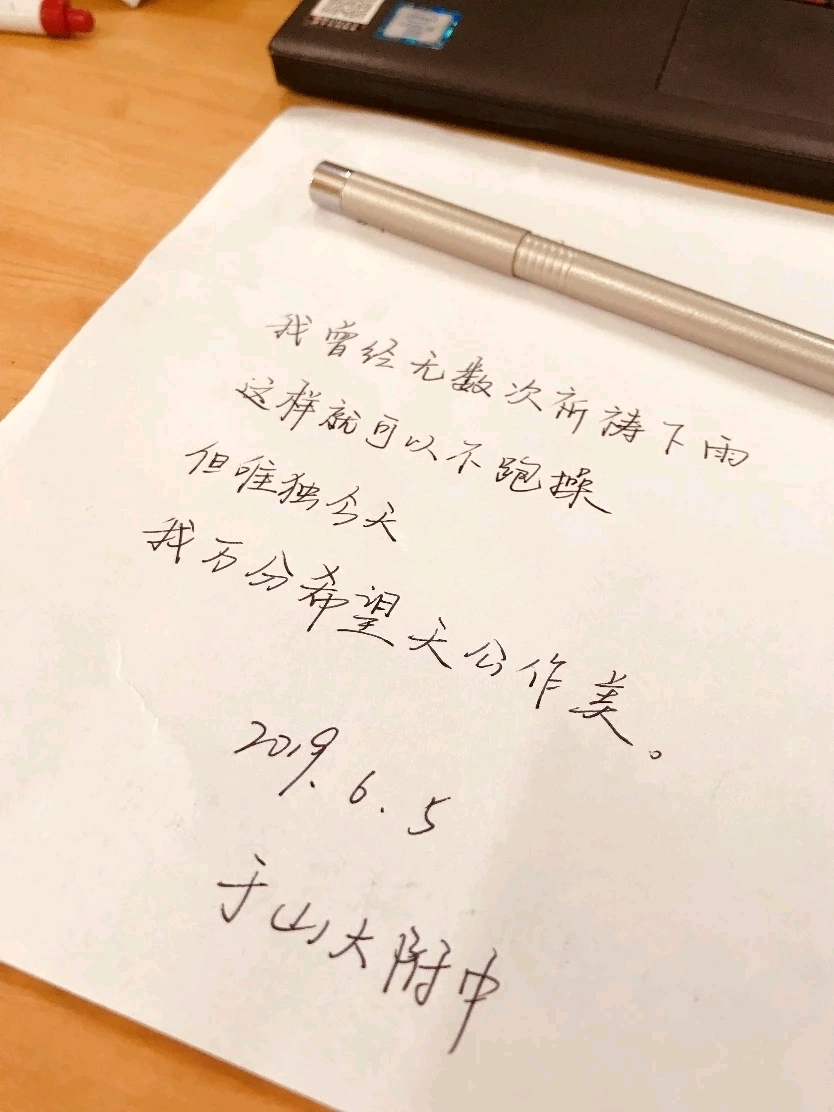 我曾经无数次祈祷下雨
这样就可以不跑操
但唯独今天
我万分希望天公作美。
2019.6.5
于山大附中